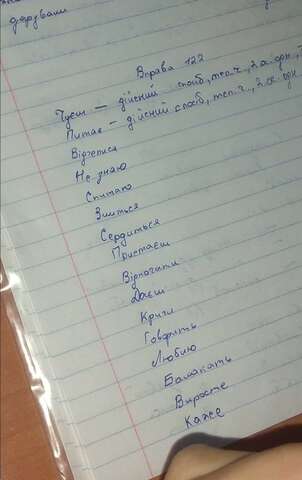 дарували
Вправа 122
Чуєш – дійсний спосіб, теп.ч., 2 ос. одн.
Питає – дійсний спосіб, теп.ч., 2 ос. одн
Не знаю
Спитаю
Злиться
Сердиться
Пристаєш
Відпочити
Даєш
Кричи
Говорить
Люблю
Балакать
Виросте
Каже